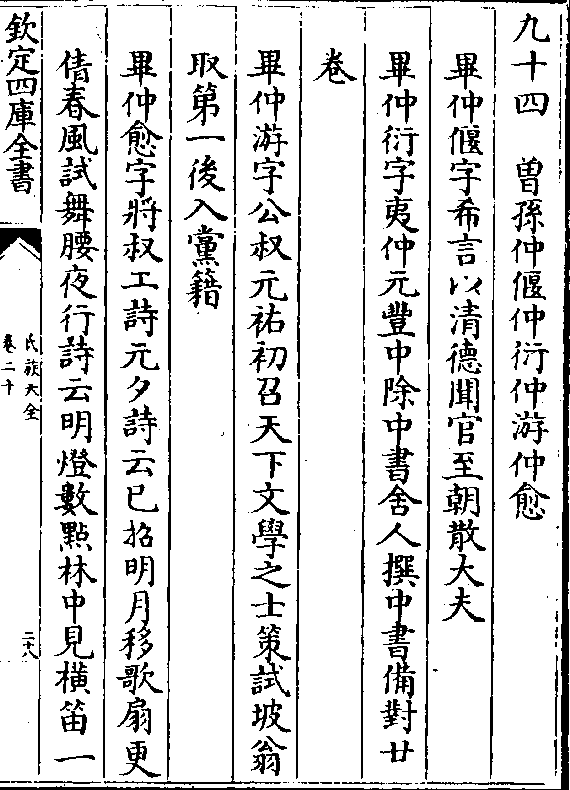 九十四　曽孫仲偃仲衍仲游仲愈
畢仲偃字希言以清德聞官至朝散大夫
畢仲衍字夷仲元豐中除中書舍人撰中書備對廿
卷
畢仲游字公叔元祐初召天下文學之士策試坡翁
取第一後入黨籍
畢仲愈字將叔工詩元夕詩云已招明月移歌扇更
倩春風試舞腰夜行詩云明燈數點林中見橫笛一
欽定四庫全書
氏族大全
卷二十
二十八